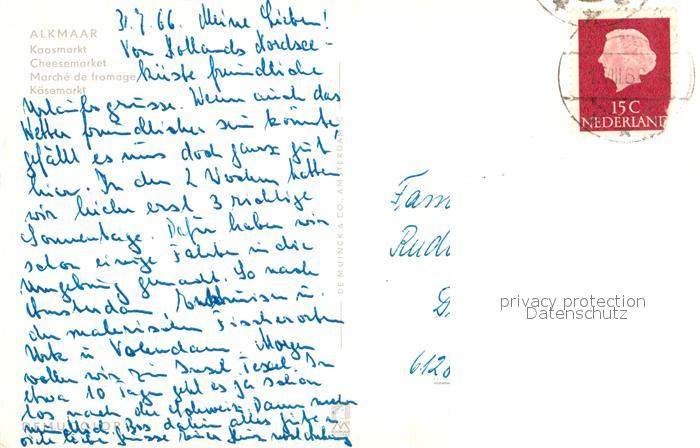 31.7.66. Meine Lieben!
Von Hollands Nordsee-
küste freundliche
Urlaubsgrüsse. Wenn auch das
Wetter freundlicher sein könnte,
gefällt es uns doch ganz gut
hier. In den 2 Wochen hatten
wir leider erst 3 richtige
Sonnentage. Dafür haben wir
schon einige Fahrten in die
Umgebung gemacht. So nach
Amsterdam Enkhuisen u.
den malerischen Fischerorten
Urk u. Volendam. Morgen
wollen wir zur Insel Texel. In
etwa 10 Tagen geht es ja schon
los nach der Schweiz. Dann mehr
mündlich. Bis dahin alles Gute u.
viele liebe Grüsse
ALKMAAR
Kaasmarkt
Cheesemarket
Marché de fromage
Käsemarkt
DE MUINCK & CO. AMSTERDAM
15 C
NEDERLAND
Fam
Rudi
D
6120
privacy protection
Datenschutz